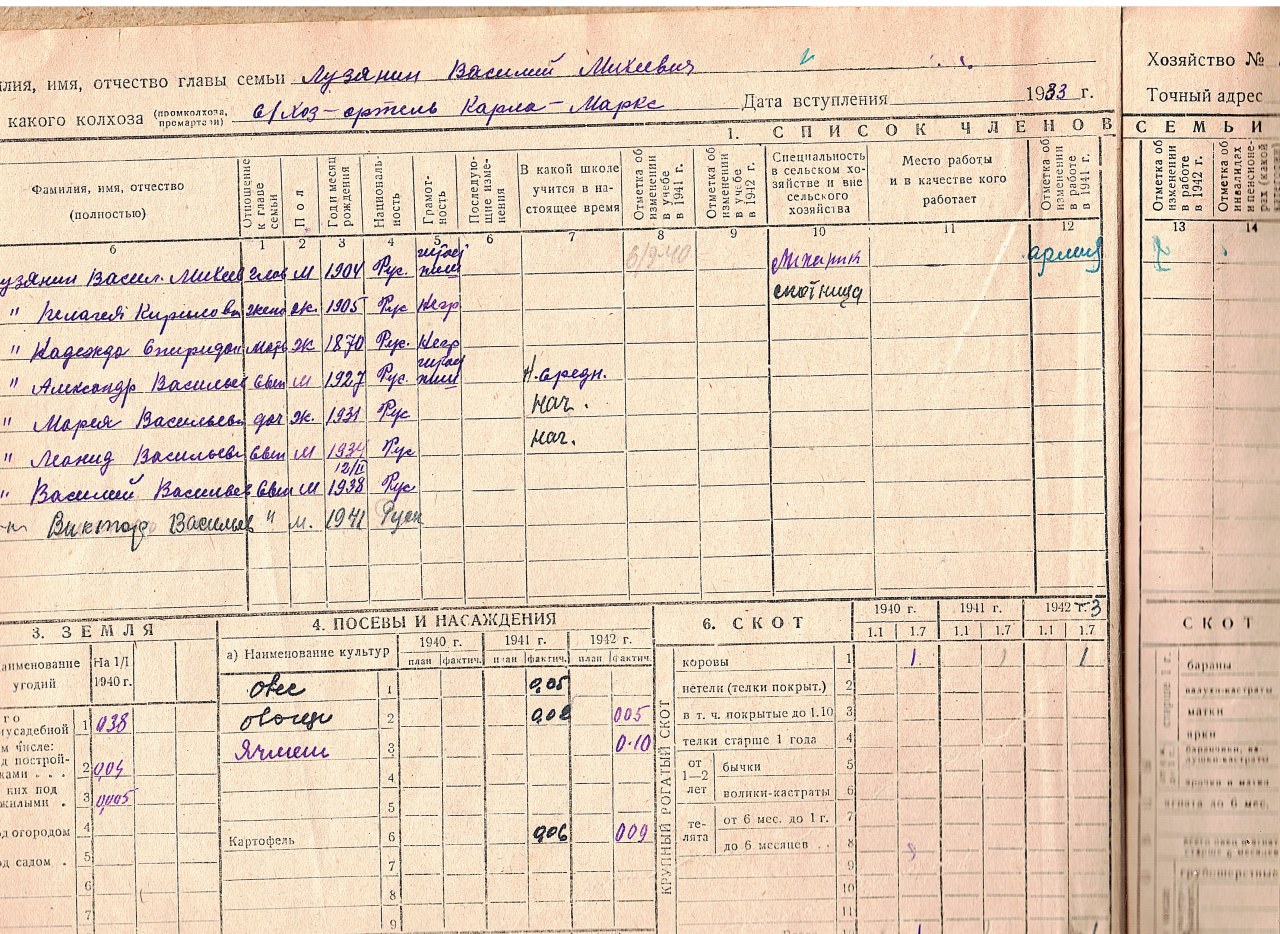 илия, имя, отчество главы семьи Лузянин Василий Михеевич
Хозяйство №
какого колхоза (промколхоза, промартели) с/хоз-артель Карла-Маркс Дата вступления 1933 г.
Точный адрес
1. СПИСОК ЧЛЕНОВ СЕМЬИ
Фамилия, имя, отчество (полностью) Отношение к главе семьи Пол Год и месяц рождения Националь-ность Грамот-ность Последую-щие изме-нения В какой школе учится в на-стоящее время Отметка об изменении в учебе в 1941 г. Отметка об изменении в учебе в 1942 г. Специальность в сельском хо-зяйстве и вне сельского хозяйства Место работы и в качестве кого работает Отметка об изменении в работе в 1941 г. Отметка об изменении в работе в 1942 г. Отметка об инвалидах и пенсионе-рах (какой
6 1 2 3 4 5 6 7 8 9 10 11 12 13 14
узянин Васил. Михеев глав м 1904 Рус. армия
" Пелагея Кирилловн жена ж. 1905 Рус Негр скотница
" Надежда Спиридон мать ж 1870 Рус. Негр
" Александр Васильев сын м 1927 Рус. Н. средн.
" Мария Васильевн доч ж. 1931 Рус нач.
" Леонид Васильев сын м 1934 Рус нач.
" Василий Васильев сын м 12/II 1938 Рус
" Виктор Васильев " м. 1941 Русск
3. ЗЕМЛЯ
аименование угодий На 1/I 1940 г.
го
иусадебной 1 038
м числе:
д построй-ками . . . 2 0,04
них под жилыми . 3 0,005
од огородом 4
од садом . 5
6
7
4. ПОСЕВЫ И НАСАЖДЕНИЯ
а) Наименование культур 1940 г. 1941 г. 1942 г.
план фактич. план фактич. план фактич.
овес 1 0,05
овощи 2 0,02 005
Ячмень 3 0.10
4
5
Картофель 6 0,06 009
7
8
9
6. СКОТ
1940 г. 1941 г. 1942 г. 3
1.1 1.7 1.1 1.7 1.1 1.7
КРУПНЫЙ РОГАТЫЙ СКОТ
коровы 1 1 1 1
нетели (телки покрыт.) 2
в т. ч. покрытые до 1.10 3
телки старше 1 года 4
от 1—2 лет бычки 5
волики-кастраты 6
те-лята от 6 мес. до 1 г. 7
до 6 месяцев . . 8 8
9
10
11
СКОТ
старше 1 г.
бараны
валухи-кастраты
матки
ярки